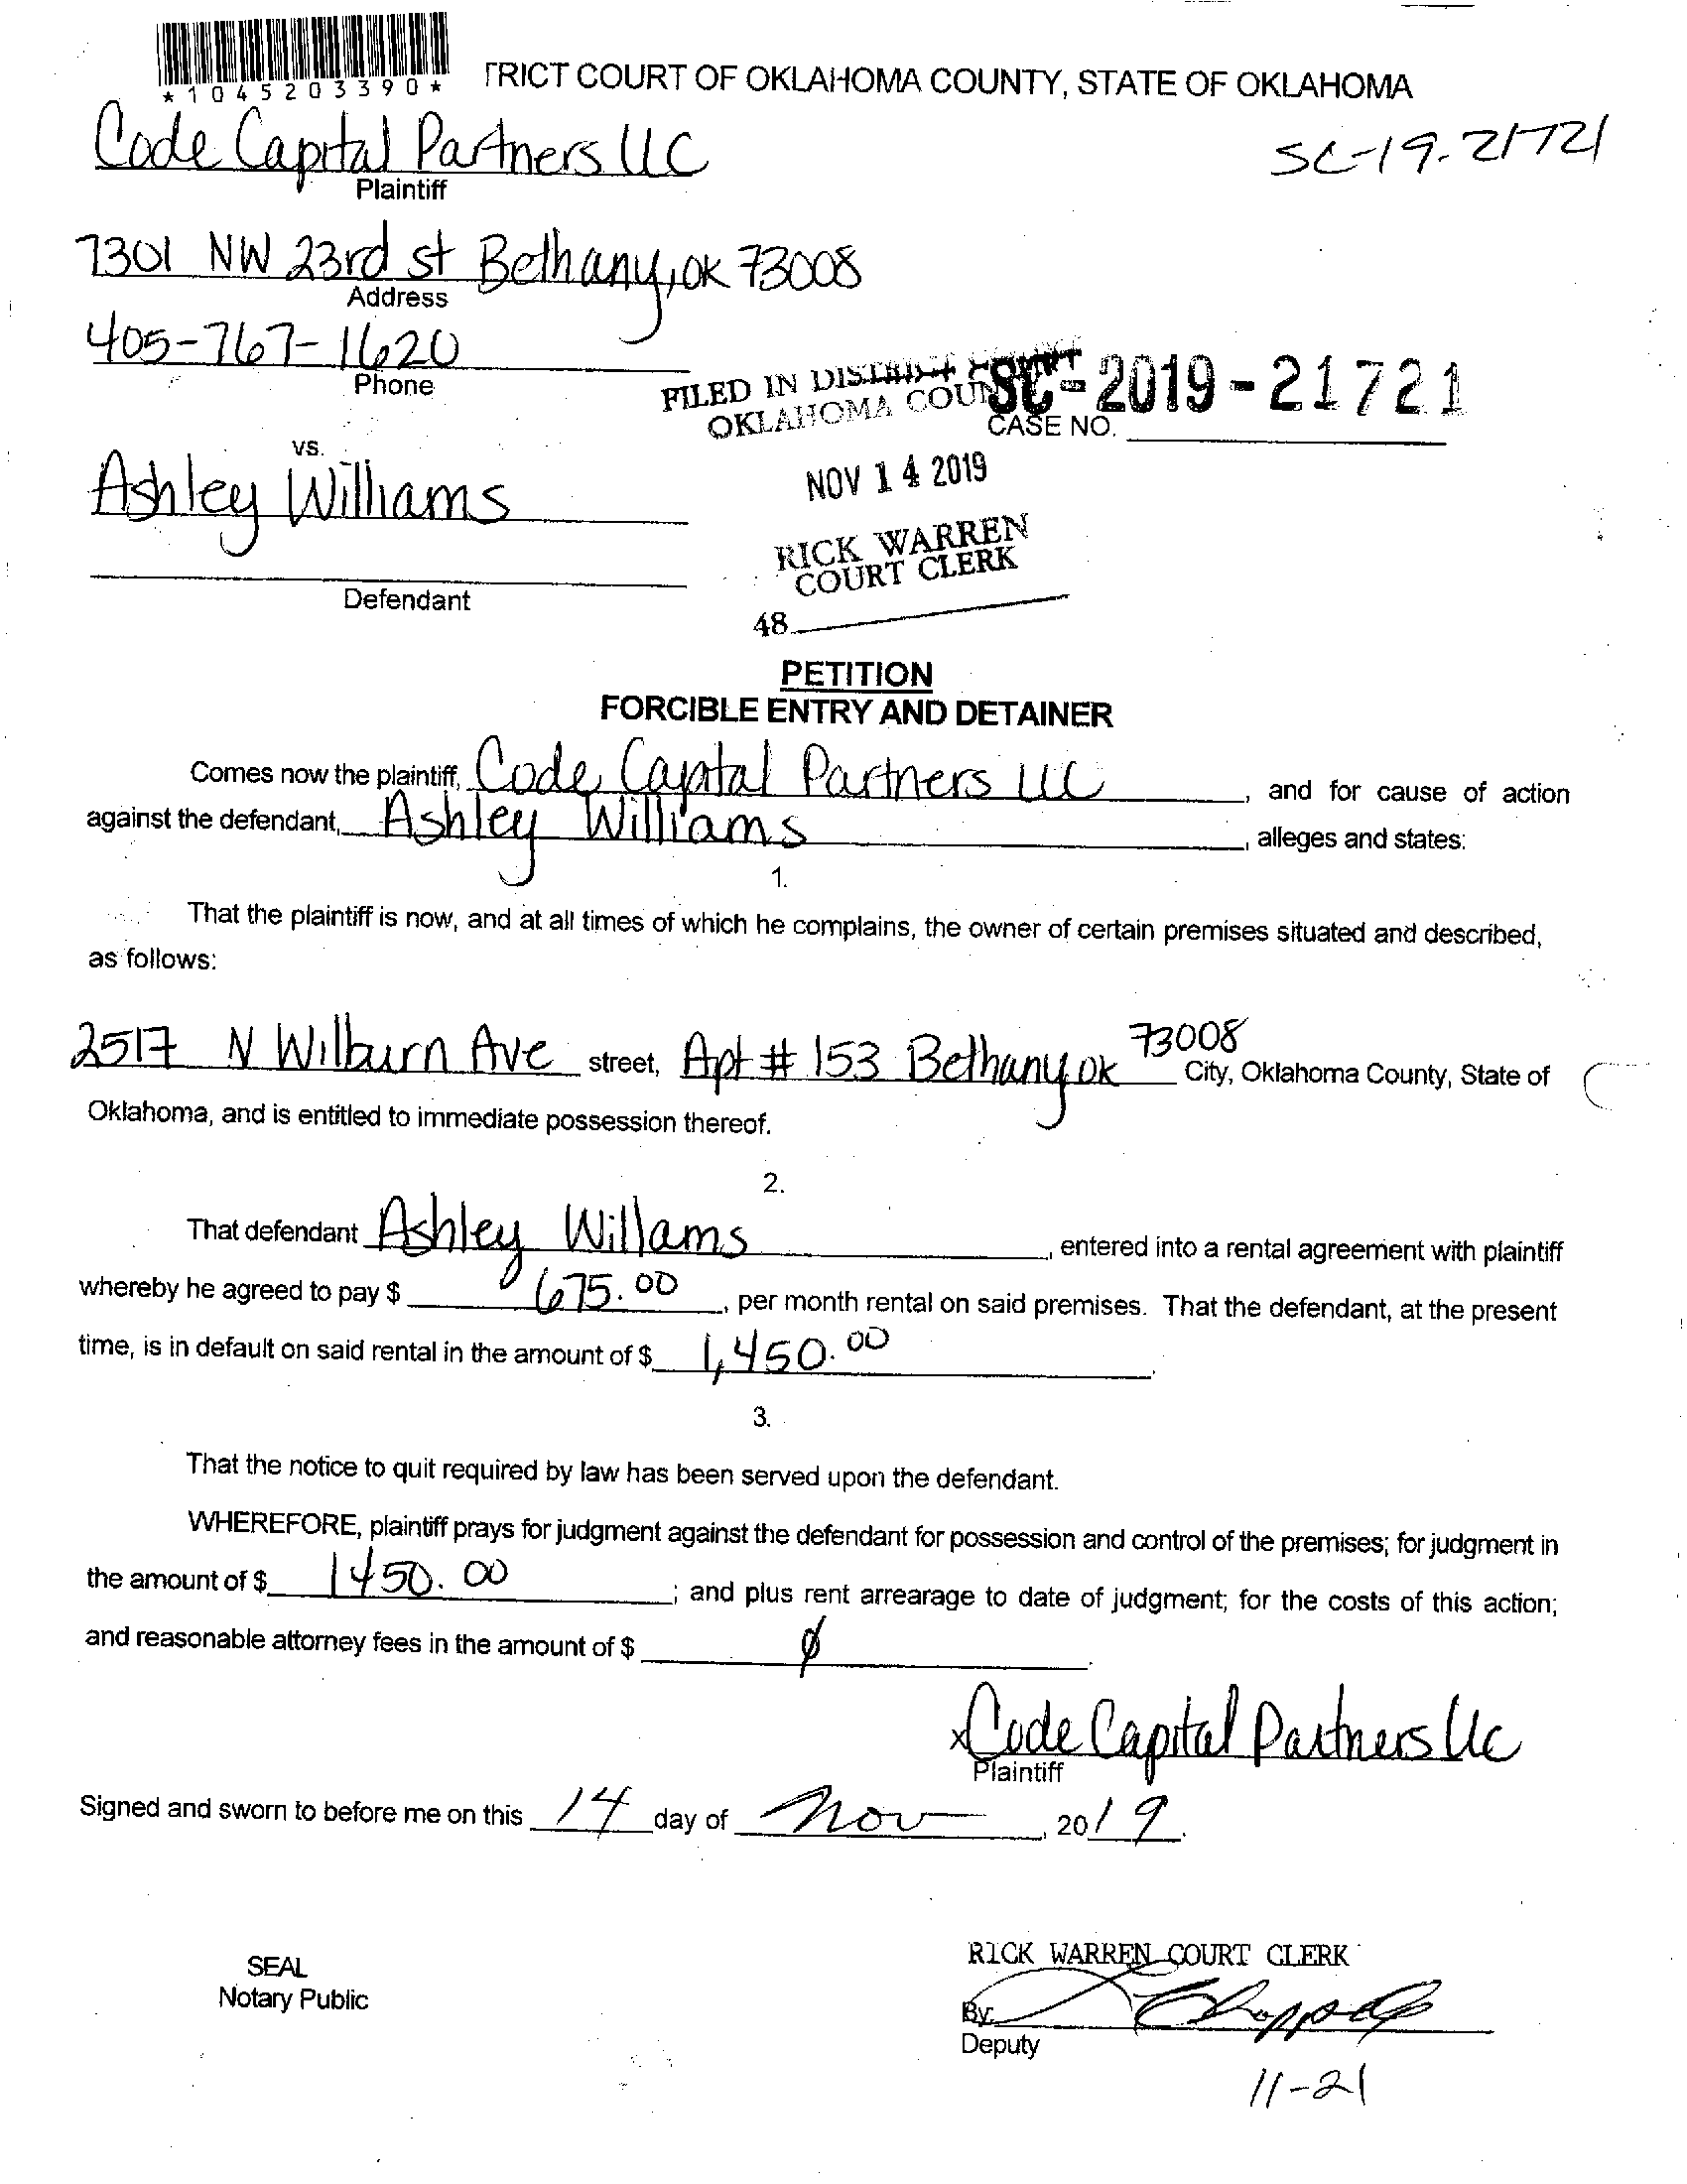 *1045203390*
TRICT COURT OF OKLAHOMA COUNTY, STATE OF OKLAHOMA
Code Capital Partners LLC
SC-19-21721
Plaintiff
7301 NW 23rd st Bethany, OK 73008
Address
405-767-1620
Phone
FILED IN DISTRICT COURT
OKLAHOMA COUN
SC-2019-21721
CASE NO.
vs.
NOV 14 2019
Ashley Williams
RICK WARREN
COURT CLERK
Defendant
48
PETITION
FORCIBLE ENTRY AND DETAINER
Comes now the plaintiff, Code Capital Partners LLC, and for cause of action
against the defendant, Ashley Williams, alleges and states:
1.
That the plaintiff is now, and at all times of which he complains, the owner of certain premises situated and described,
as follows:
2517 N Wilburn Ave street, Apt # 153 Bethany OK 73008 City, Oklahoma County, State of
Oklahoma, and is entitled to immediate possession thereof.
2.
That defendant Ashley Willams, entered into a rental agreement with plaintiff
whereby he agreed to pay $ 675.00, per month rental on said premises. That the defendant, at the present
time, is in default on said rental in the amount of $ 1,450.00.
3.
That the notice to quit required by law has been served upon the defendant.
WHEREFORE, plaintiff prays for judgment against the defendant for possession and control of the premises; for judgment in
the amount of $ 1450.00; and plus rent arrearage to date of judgment; for the costs of this action;
and reasonable attorney fees in the amount of $ ø.
x Code Capital Partners llc
Plaintiff
Signed and sworn to before me on this 14 day of Nov, 2019.
SEAL
Notary Public
RICK WARREN COURT CLERK
By:
Deputy
11-21